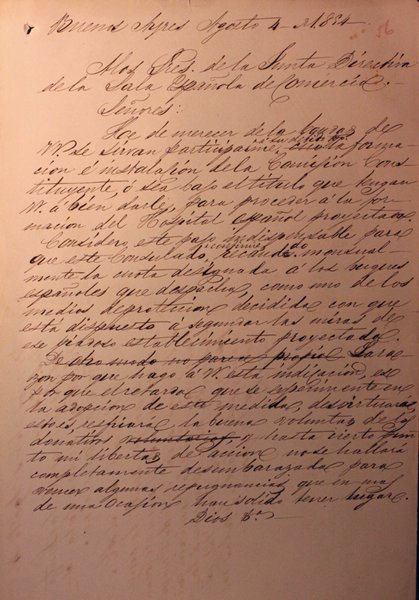 Buenos Ayres Agosto 4 de 1854.
56
A los Sres. de la Junta Directiva
de la Sala Española de Comercio.
Señores:
He de merecer de la de
VV. se sirvan participarme la forma
cion é instalacion de la Comision Cons
tituyente, ó sea bajo el título que tengan
VV. á bien darle, para proceder á la for
macion del Hospital español proyectado.
Considero este paso indispensable para
que este Consulado, mensual
mente la cuota designada á los buques
españoles que despacha, como uno de los
medios de proteccion decidida con que
está dispuesto á segundar las miras de
ese piadoso establecimiento proyectado.
De otro modo no parece propio La ra
zon por que hago á VV. esta indicacion, es
por que el retardo que se esperimente en
la adopcion de esta medida, desvirtuará
esto es, resfriará la buena voluntad de los
donativos voluntarios y hasta cierto pun
to mi libertad de accion no se hallará
completamente desembarazada para
vencer algunas repugnancias que en mas
de una ocasion han solido tener lugar.
Dios &a